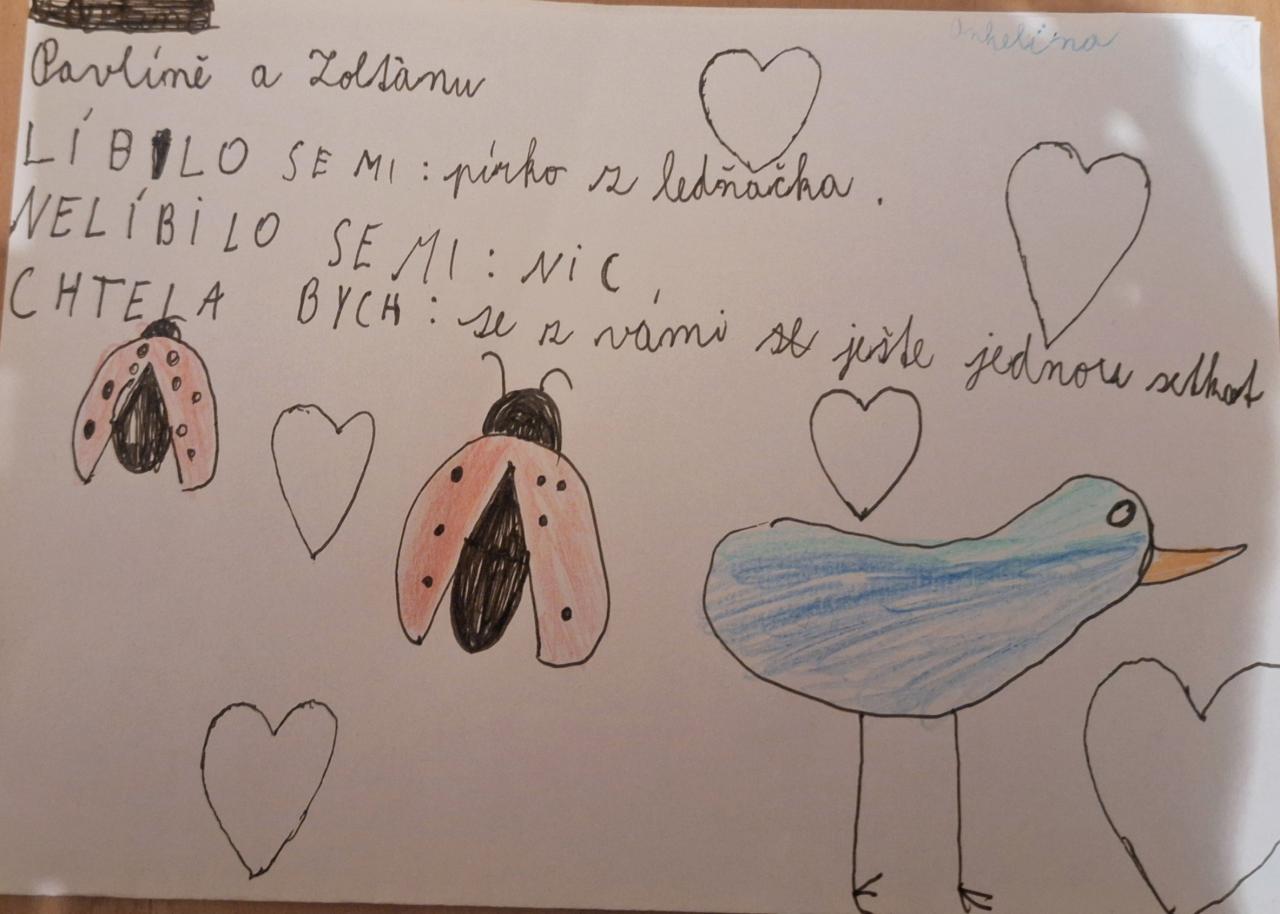 Anhelina
Pavlíně a Zoltánu
LÍBILO SE MI: pírko z ledňáčka.
NELÍBILO SE MI: NIC,
CHTELA BYCH: se z vámi se ješte jednou setkat